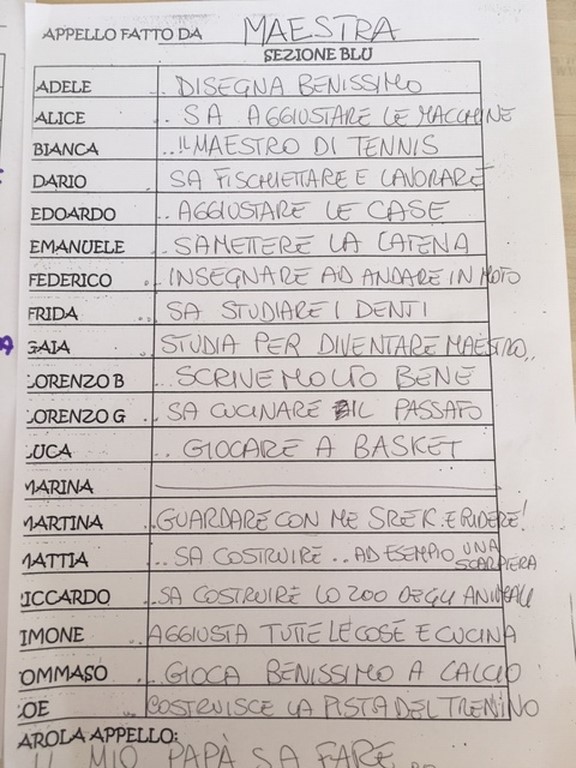 APPELLO FATTO DA MAESTRA
SEZIONE BLU
ADELE .. DISEGNA BENISSIMO
ALICE .. SA AGGIUSTARE LE MACCHINE
BIANCA ..IL MAESTRO DI TENNIS
DARIO .. SA FISCHIETTARE E LAVORARE
EDOARDO .. AGGIUSTARE LE CASE
EMANUELE .. SA METTERE LA CATENA
FEDERICO .. INSEGNARE AD ANDARE IN MOTO
FRIDA .. SA STUDIARE I DENTI
GAIA .. STUDIA PER DIVENTARE MAESTRO..
LORENZO B ... SCRIVE MOLTO BENE
LORENZO G ... SA CUCINARE IL PASSATO
LUCA .. GIOCARE A BASKET
MARINA
MARTINA ..GUARDARE CON ME SREK. E RIDERE!
MATTIA ... SA COSTRUIRE .. AD ESEMPIO UNA SCARPIERA
RICCARDO ...SA COSTRUIRE LO ZOO DEGLI ANIMALI
IMONE AGGIUSTA TUTTE LE COSE E CUCINA
OMMASO ... GIOCA BENISSIMO A CALCIO
OE COSTRUISCE LA PISTA DEL TRENINO
AROLA APPELLO:
IL MIO PAPÀ SA FARE